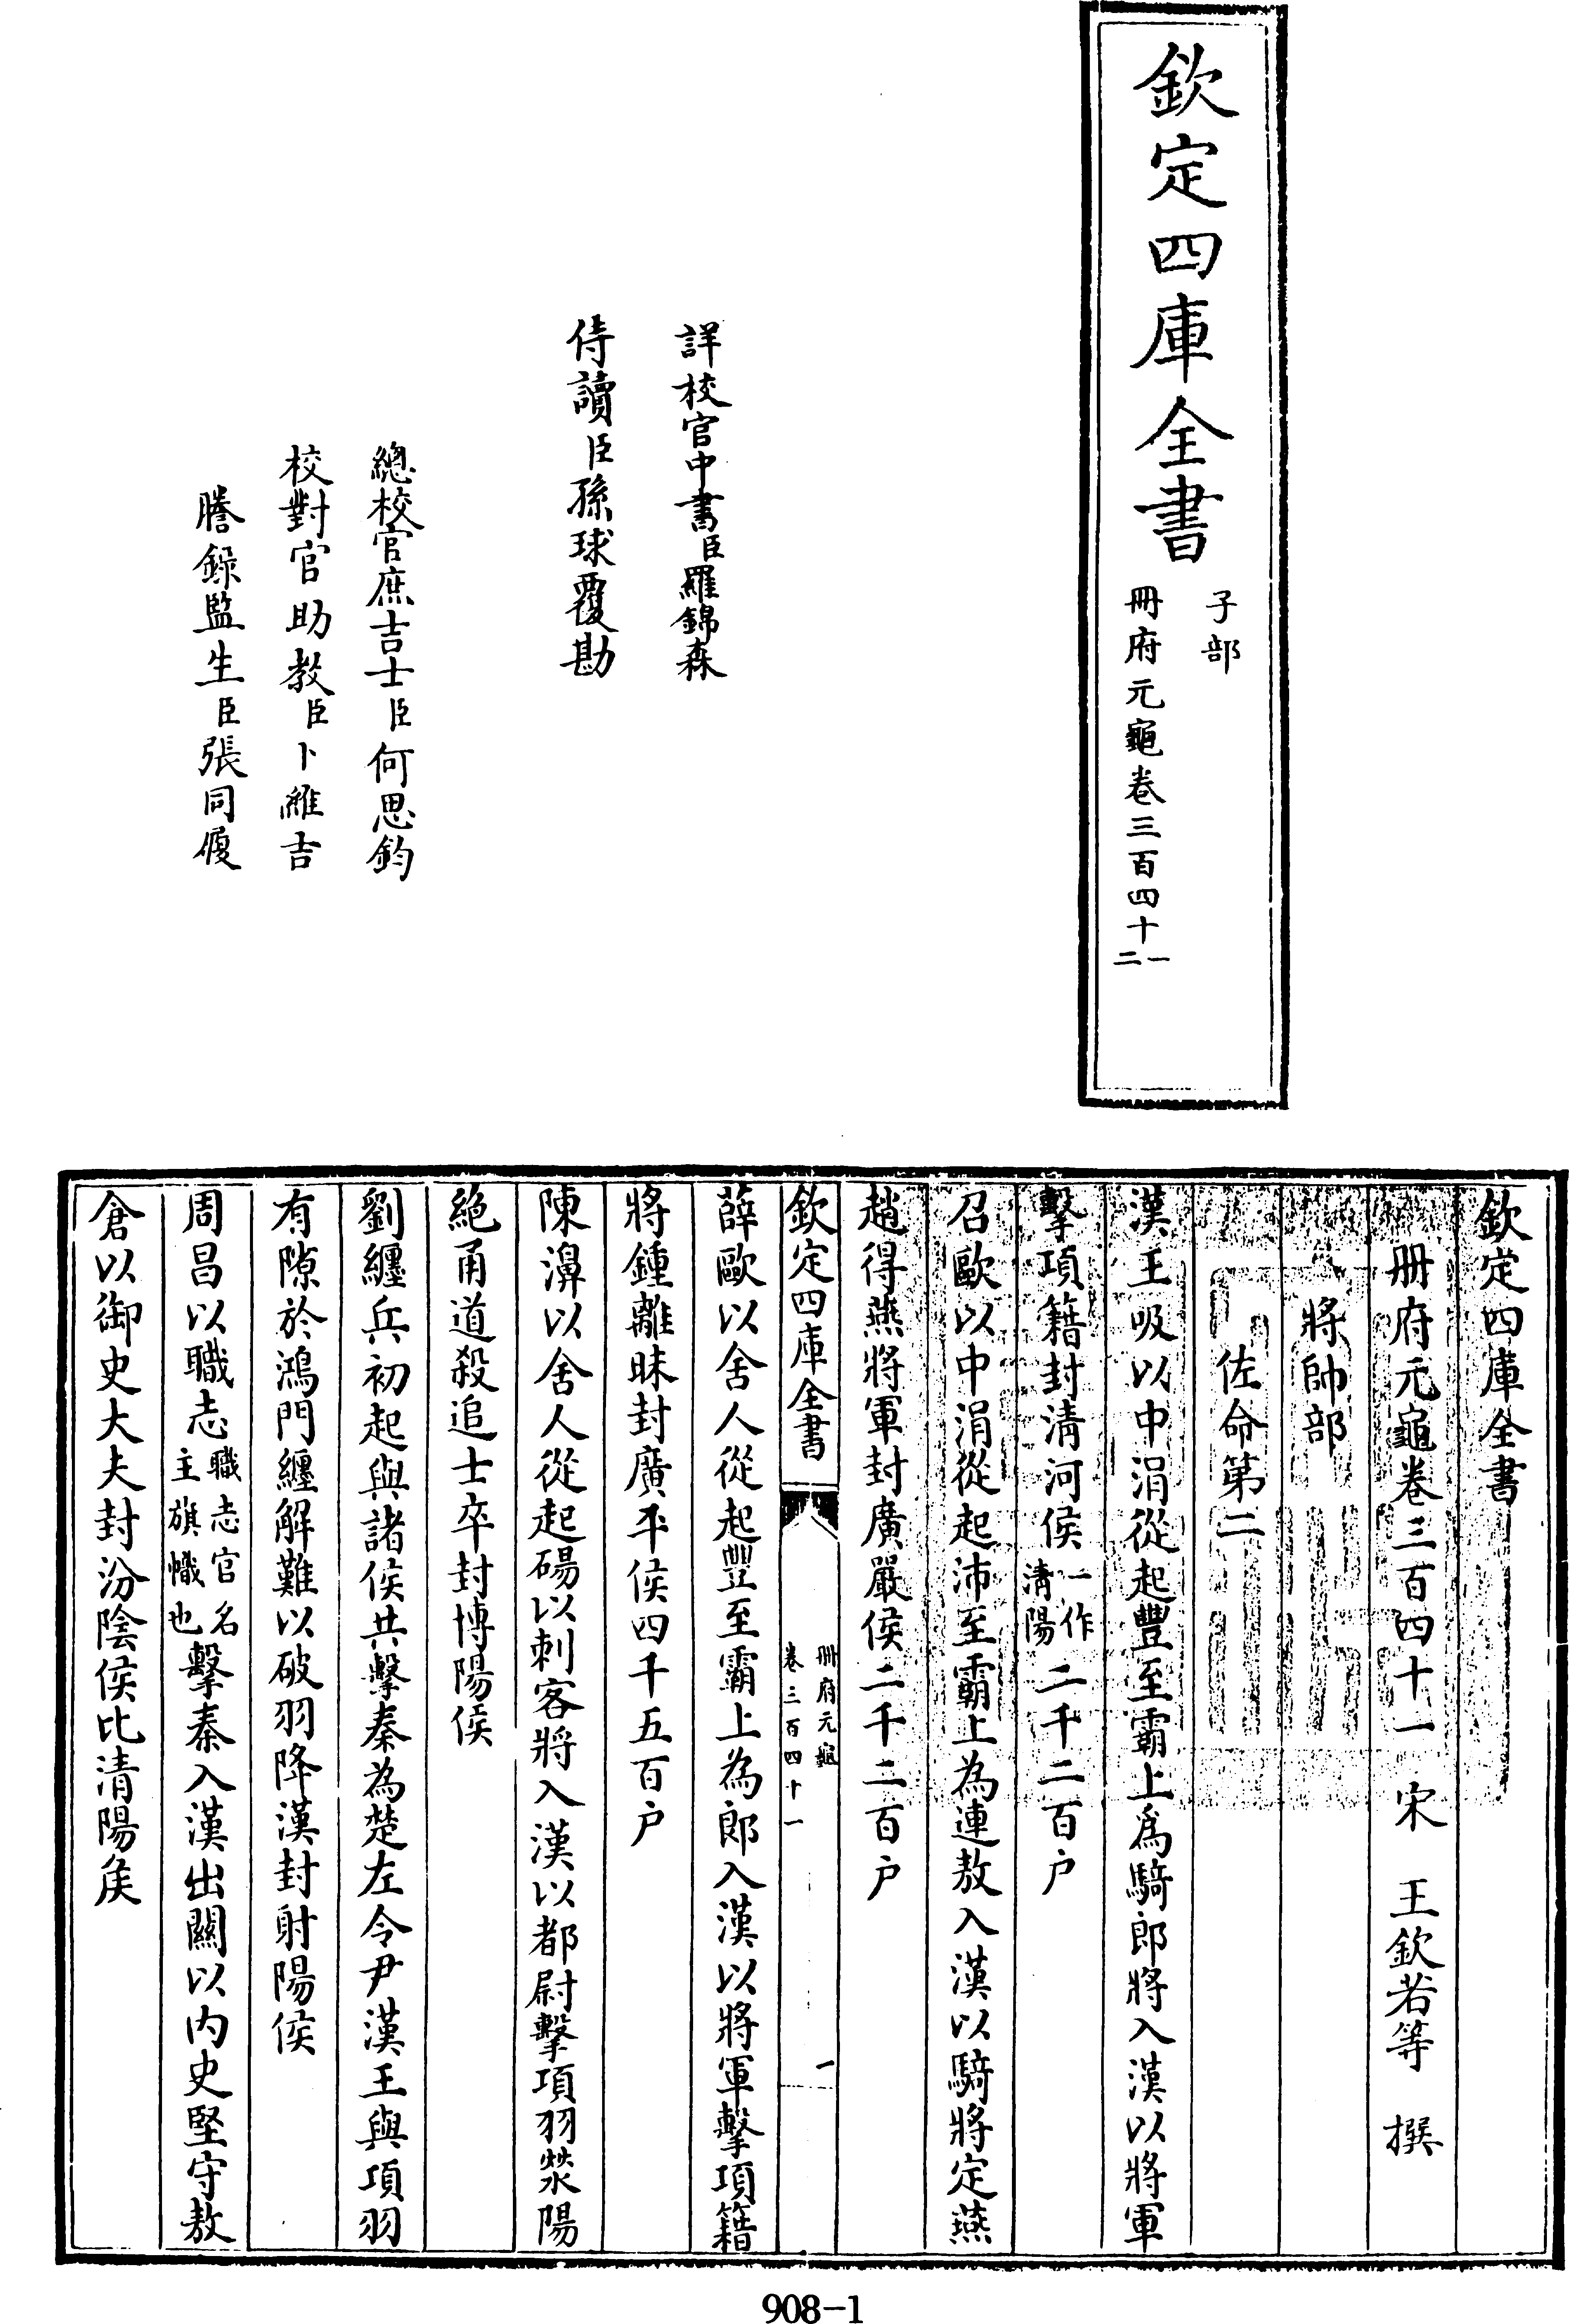 欽定四庫全書
子部
冊府元龜卷三百四十一二
詳校官中書臣羅錦森
侍讀臣孫球覆勘
總校官庶吉士臣何思鈞
校對官助教臣卜維吉
謄錄監生臣張同履
欽定四庫全書
冊府元龜卷三百四十一 宋 王欽若等 撰
將帥部
佐命第二
漢王吸以中涓從起豐至霸上爲騎郎將入漢以將軍
擊項籍封清河侯一作清陽二千二百户
召歐以中涓從起沛至霸上為連敖入漢以騎將定燕
趙得燕將軍封廣嚴侯二千二百户
欽定四庫全書
冊府元龜
卷三百四十一
一
薛歐以舍人從起豐至霸上為郎入漢以將軍擊項籍
將鍾離昧封廣平侯四千五百户
陳濞以舍人從起碭以刺客將入漢以都尉擊項羽滎陽
絕甬道殺追士卒封博陽侯
劉纏兵初起與諸侯共擊秦為楚左令尹漢王與項羽
有隙於鴻門纏解難以破羽降漢封射陽侯
周昌以職志職志官名主旗幟也擊秦入漢出關以內史堅守敖
倉以御史大夫封汾陰侯比清陽侯
908-1